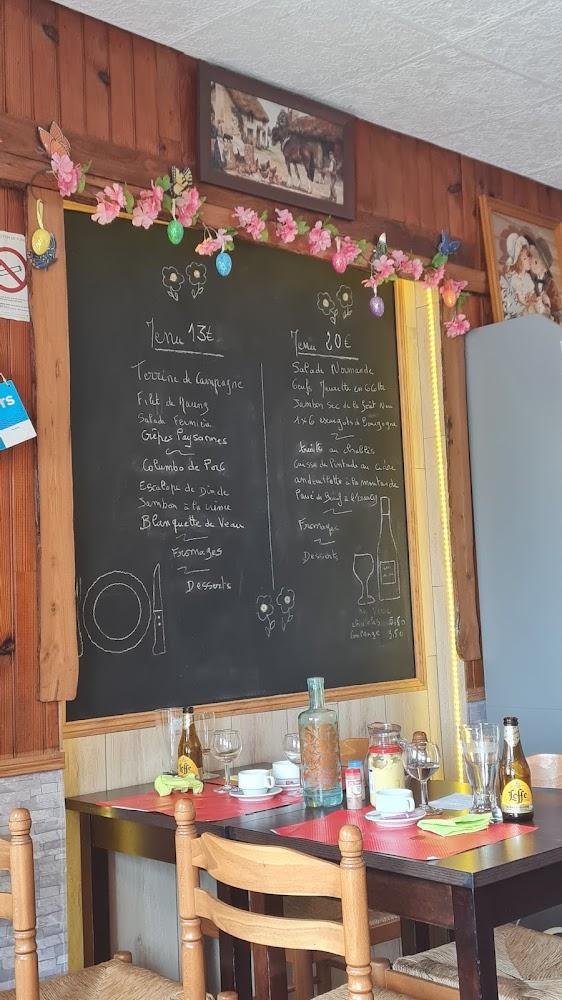 Menu 13€
Terrine de Campagne
Filet de Hareng
Salade Fermière
Crêpes Paysannes
Columbo de Porc
Escalope de Dinde
Jambon à la crème
Blanquette de Veau
Fromages
Desserts
Menu 20€
Salade Normande
Oeufs Meurette en Cocotte
Jambon Sec de la Forêt Noire
1x6 escargots de Bourgogne
truite au chablis
Cuisse de Pintade au cidre
andouillette à la moutarde
Pavé de Boeuf à l'
Fromages
Desserts
au Verre
chablis 5,50
3,50
TS
Leffe
Leffe